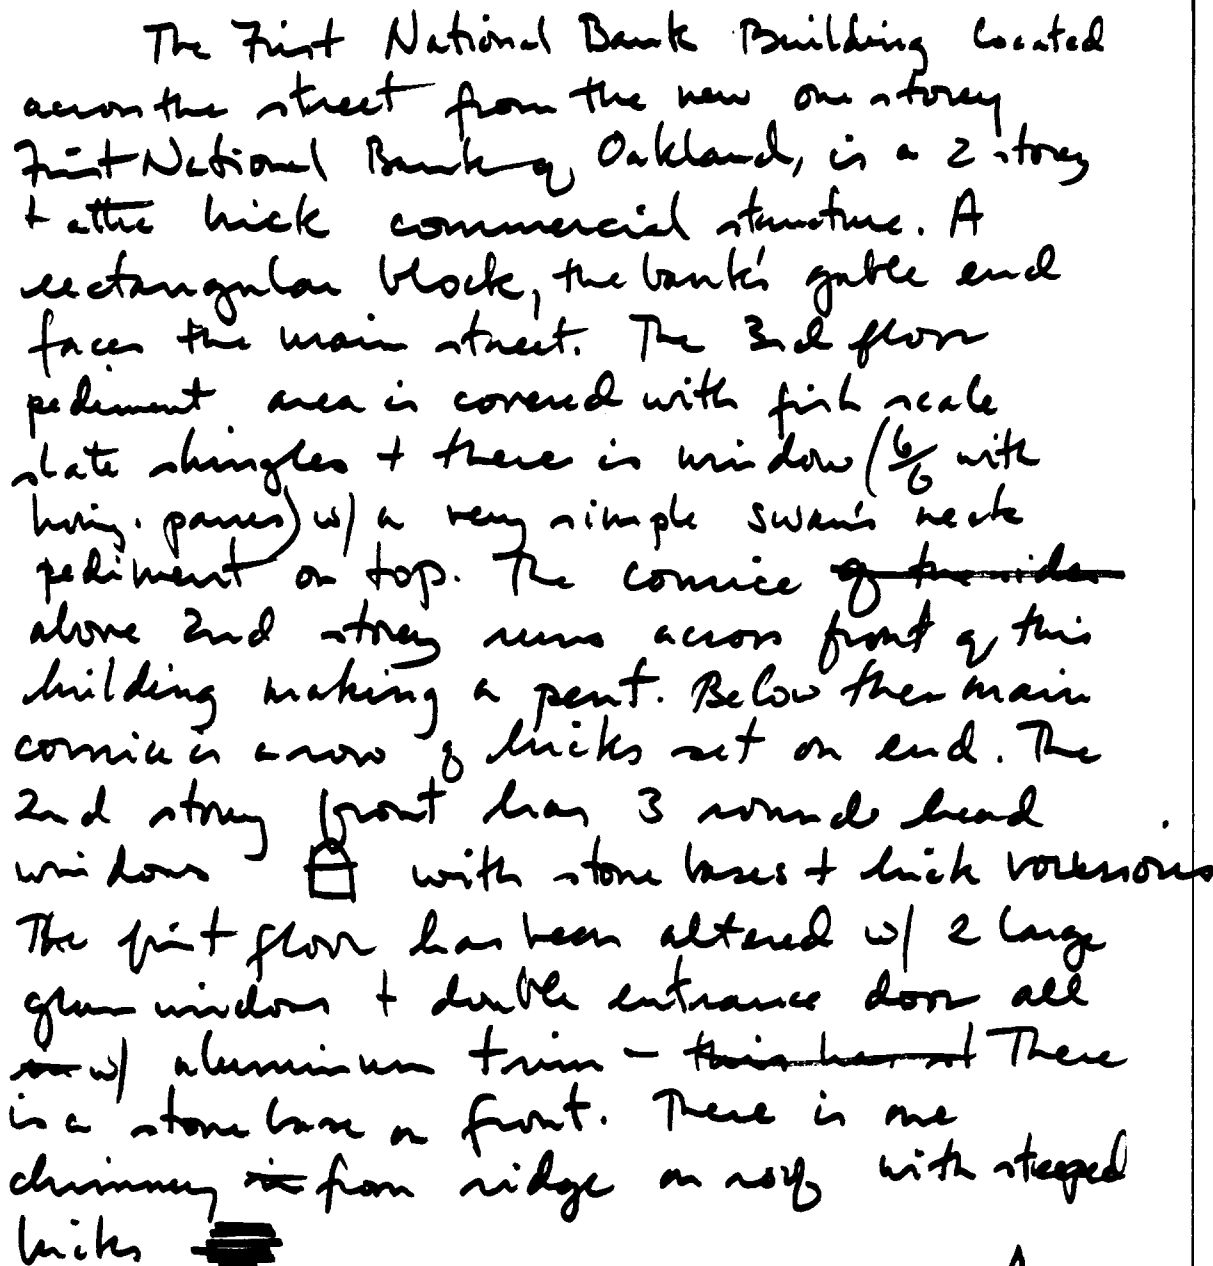 The First National Bank Building located
across the street from the new one storey
First National Bank of Oakland, is a 2 storey
+ attic brick commercial structure. A
rectangular block, the bank's gable end
faces the main street. The 3rd floor
pediment area is covered with fish scale
slate shingles + there is window (6/6 with
horiz. panes) w/ a very simple swan's neck
pediment on top. The cornice of the sides
above 2nd storey runs across front of this
building making a pent. Below the main
cornice is a row of bricks set on end. The
2nd storey front has 3 round head
windows with stone bases + brick voussoirs
The first floor has been altered w/ 2 large
glass windows + double entrance door all
w/ aluminum trim - this has st There
is a stone base on front. There is one
chimney is from ridge on roof with steeped
bricks